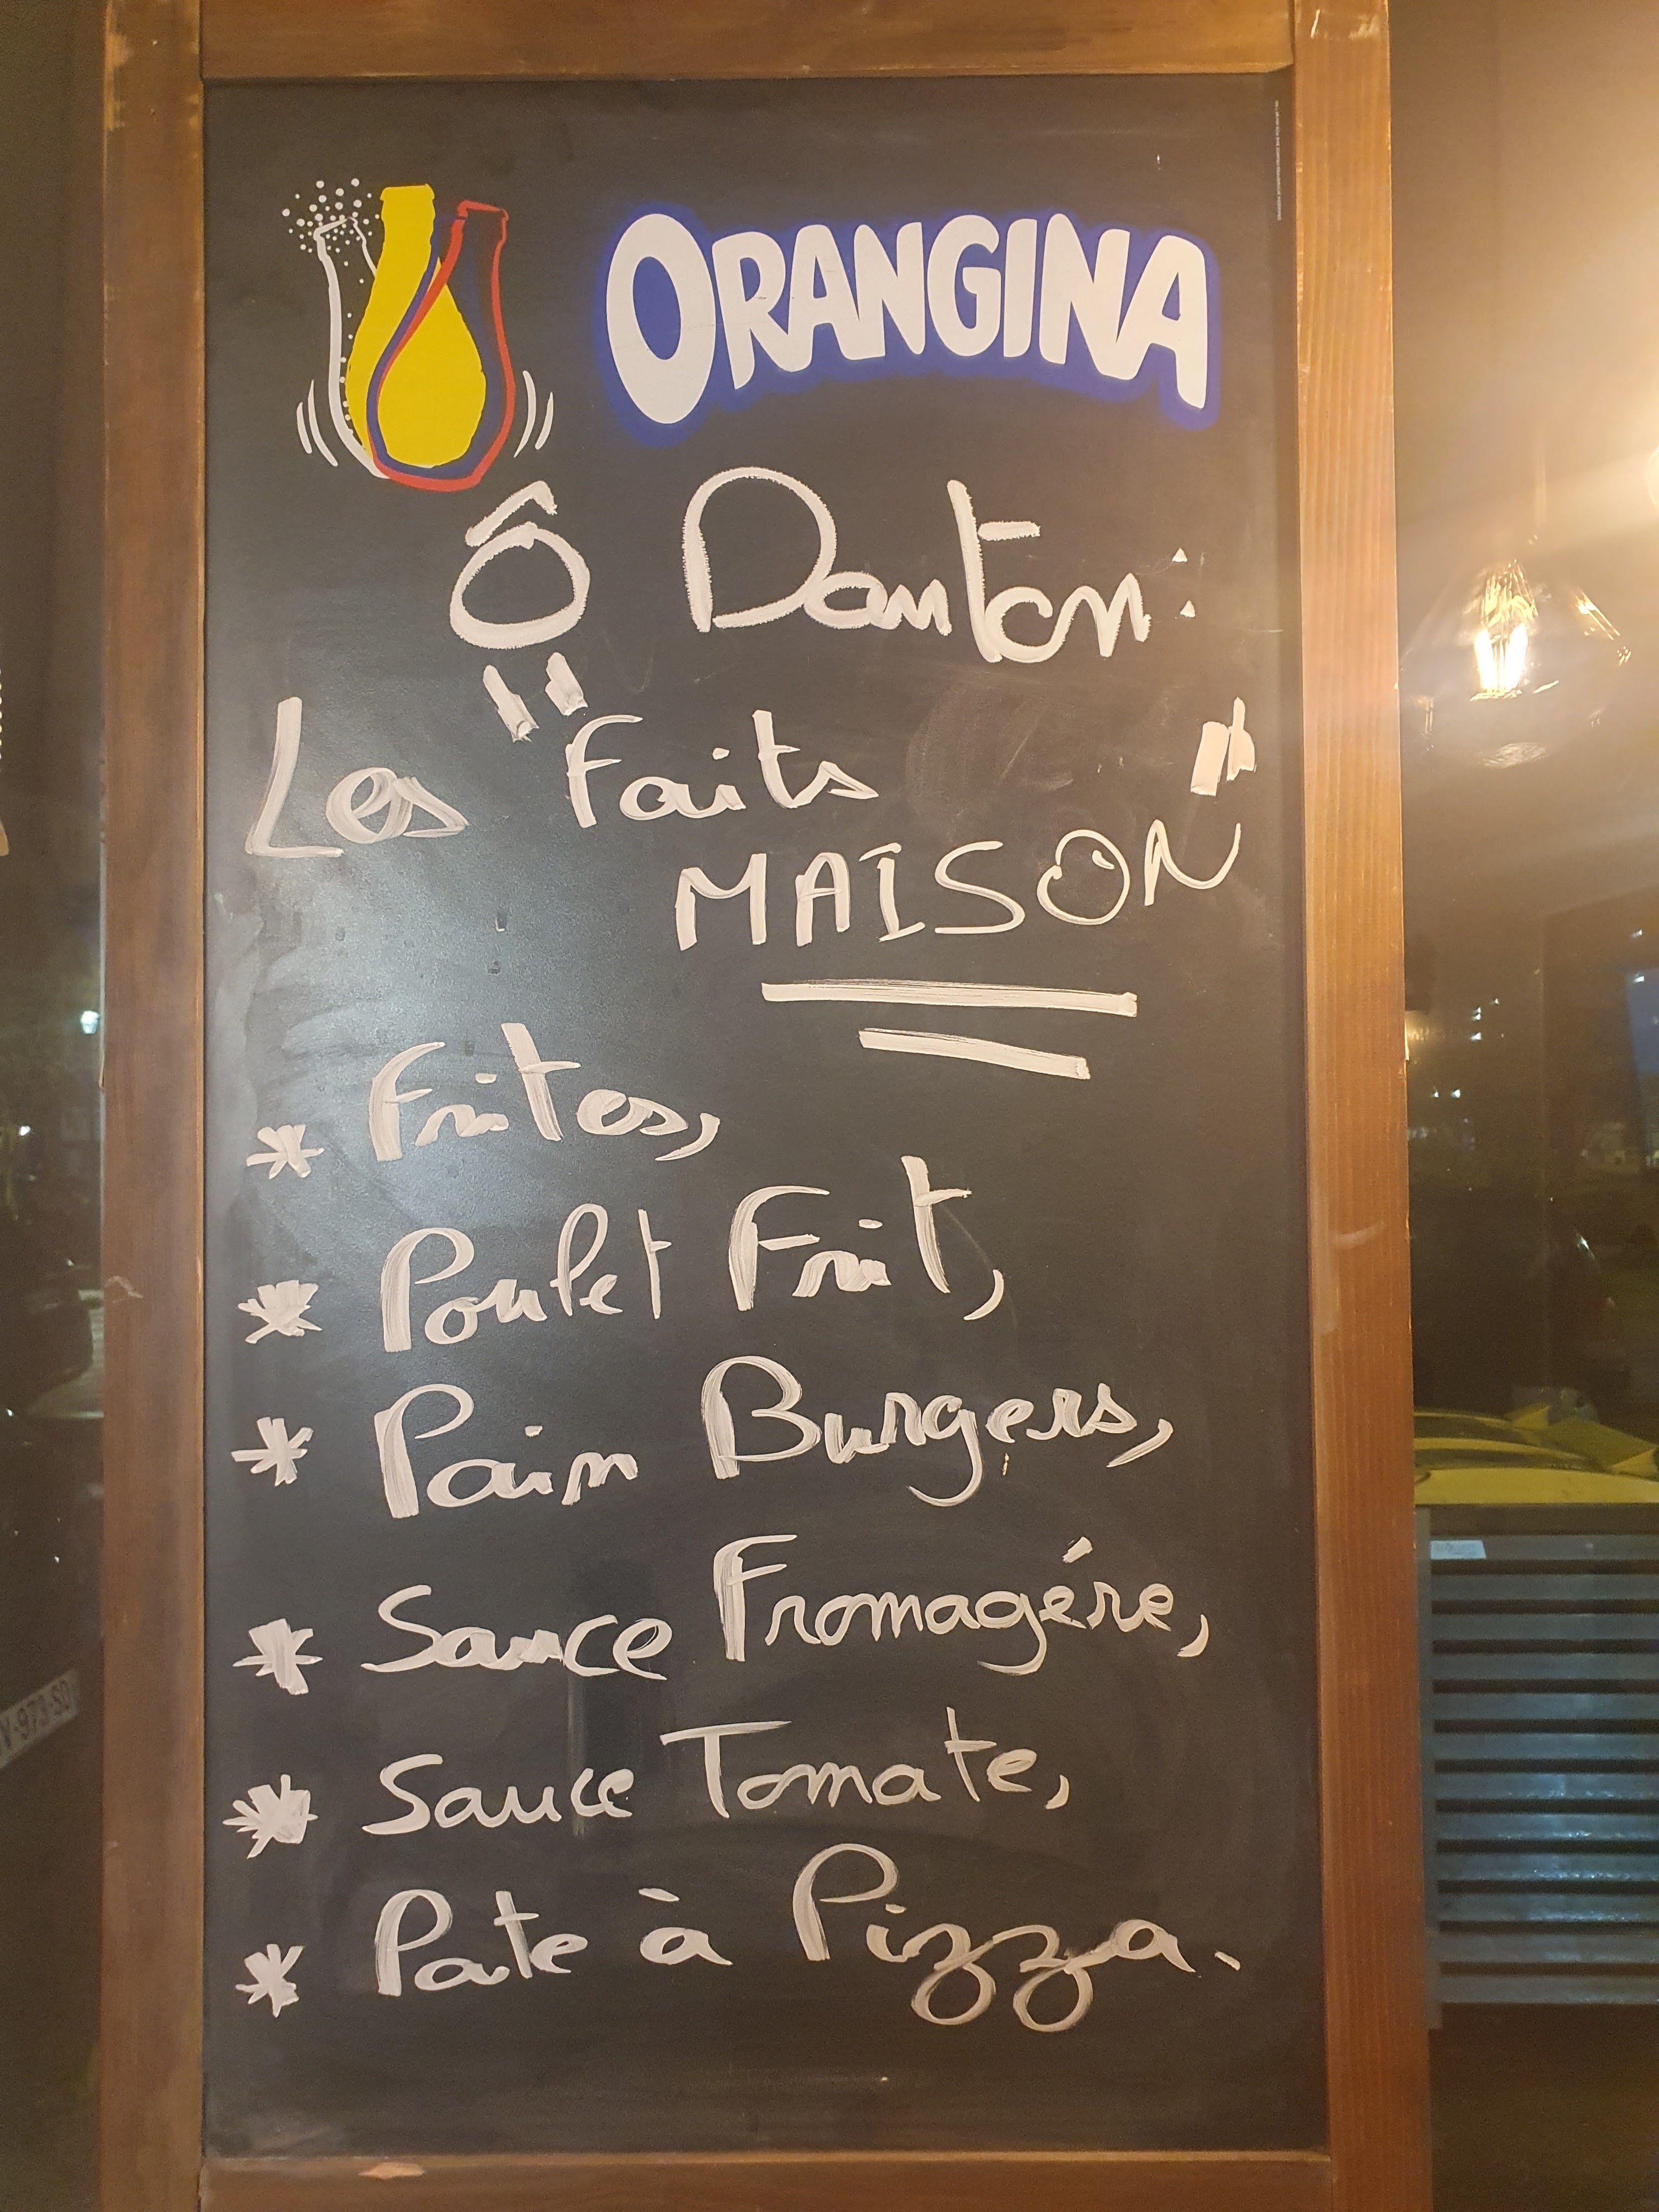 ORANGINA
Ô Danton:
Les "Faits
MAISON"
* Frites,
* Poulet Frit,
* Pain Burgers,
* Sauce Fromagére,
* Sauce Tomate,
* Pate à Pizza.